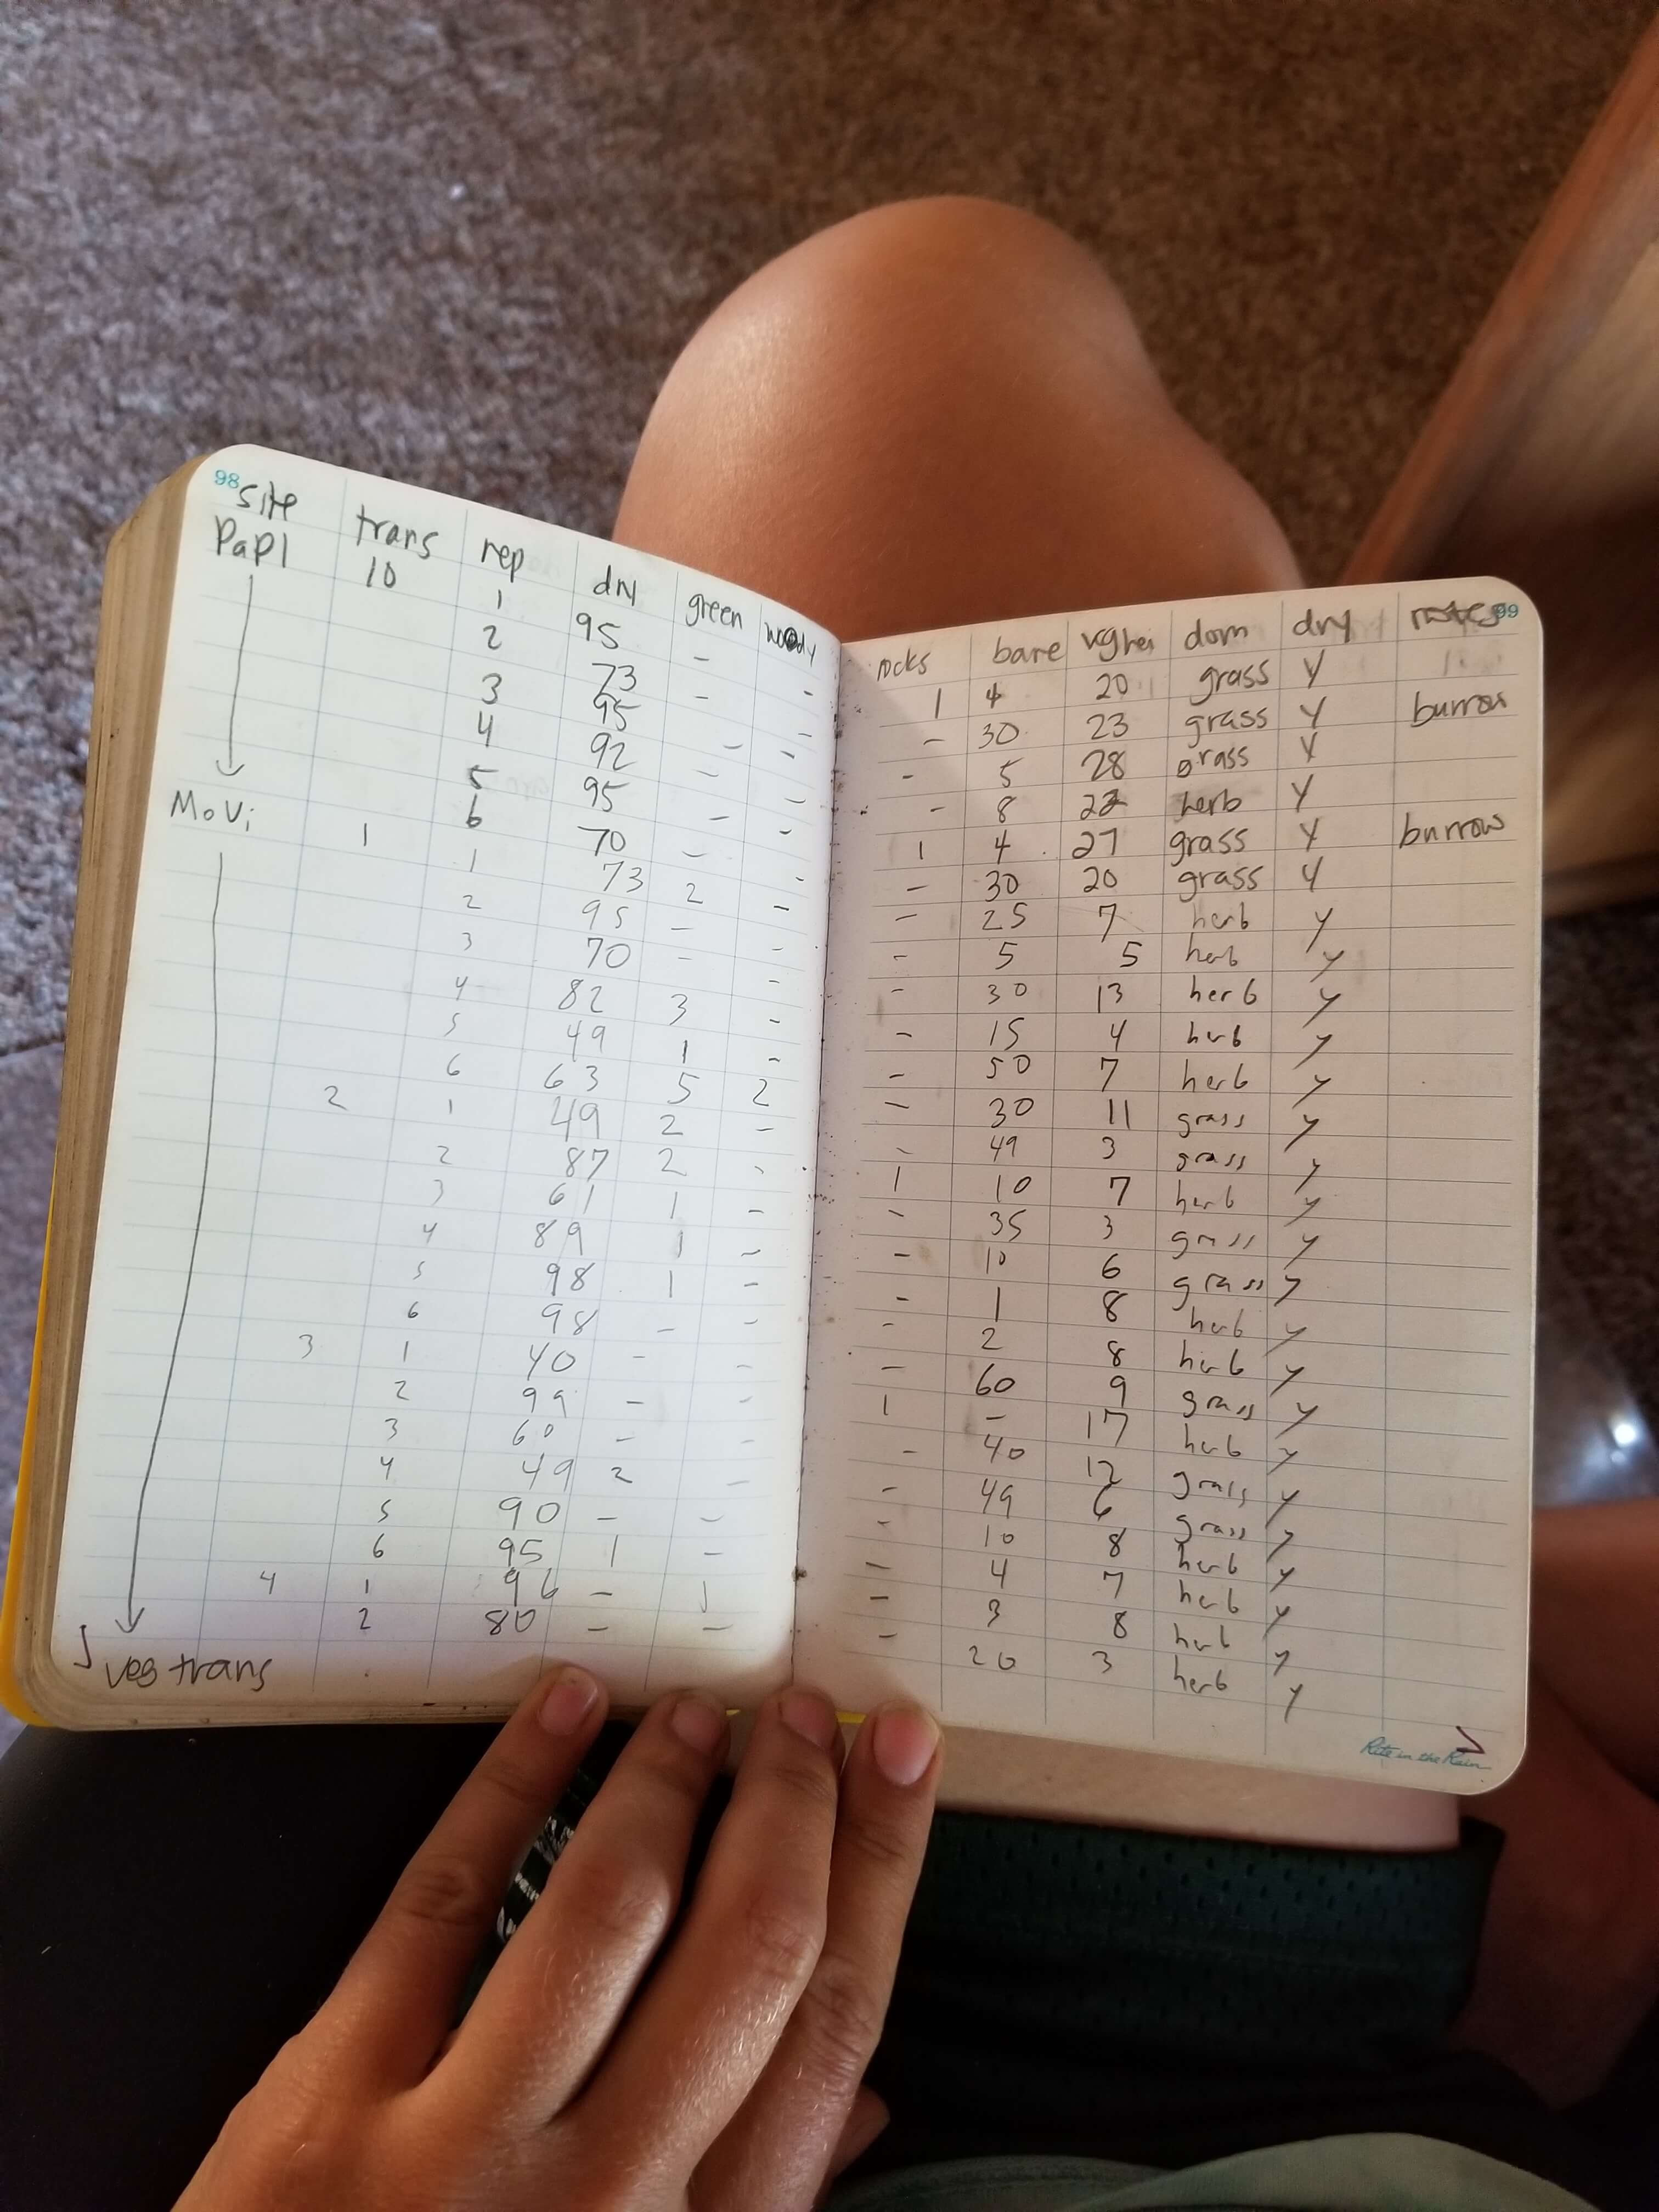 98
site trans rep dry green woody
PaP1 10 1 95 - -
2 73 - -
3 95 - -
4 92 - -
5 95 - -
6 70 - -
MoVi 1 1 73 2 -
2 95 - -
3 70 - -
4 82 3 -
5 49 1 -
6 63 5 2
2 1 49 2 -
2 87 2 -
3 61 1 -
4 89 1 -
5 98 1 -
6 98 - -
3 1 40 - -
2 99 - -
3 60 - -
4 49 2 -
5 90 - -
6 95 1 -
4 1 96 - 1
2 80 - -
veg trans
99
rocks bare vghei dom dry notes
1 4 20 grass y
- 30 23 grass y burrow
- 5 28 grass y
- 8 22 herb y
1 4 27 grass y burrow
- 30 20 grass y
- 25 7 herb y
- 5 5 herb y
- 30 13 herb y
- 15 4 herb y
- 50 7 herb y
- 30 11 grass y
- 49 3 grass y
1 10 7 herb y
- 35 3 grass y
- 10 6 grass y
- 1 8 herb y
- 2 8 herb y
- 60 9 grass y
1 - 17 herb y
- 40 12 grass y
- 49 6 grass y
- 10 8 herb y
- 4 7 herb y
- 3 8 herb y
- 20 3 herb y
Rite in the Rain